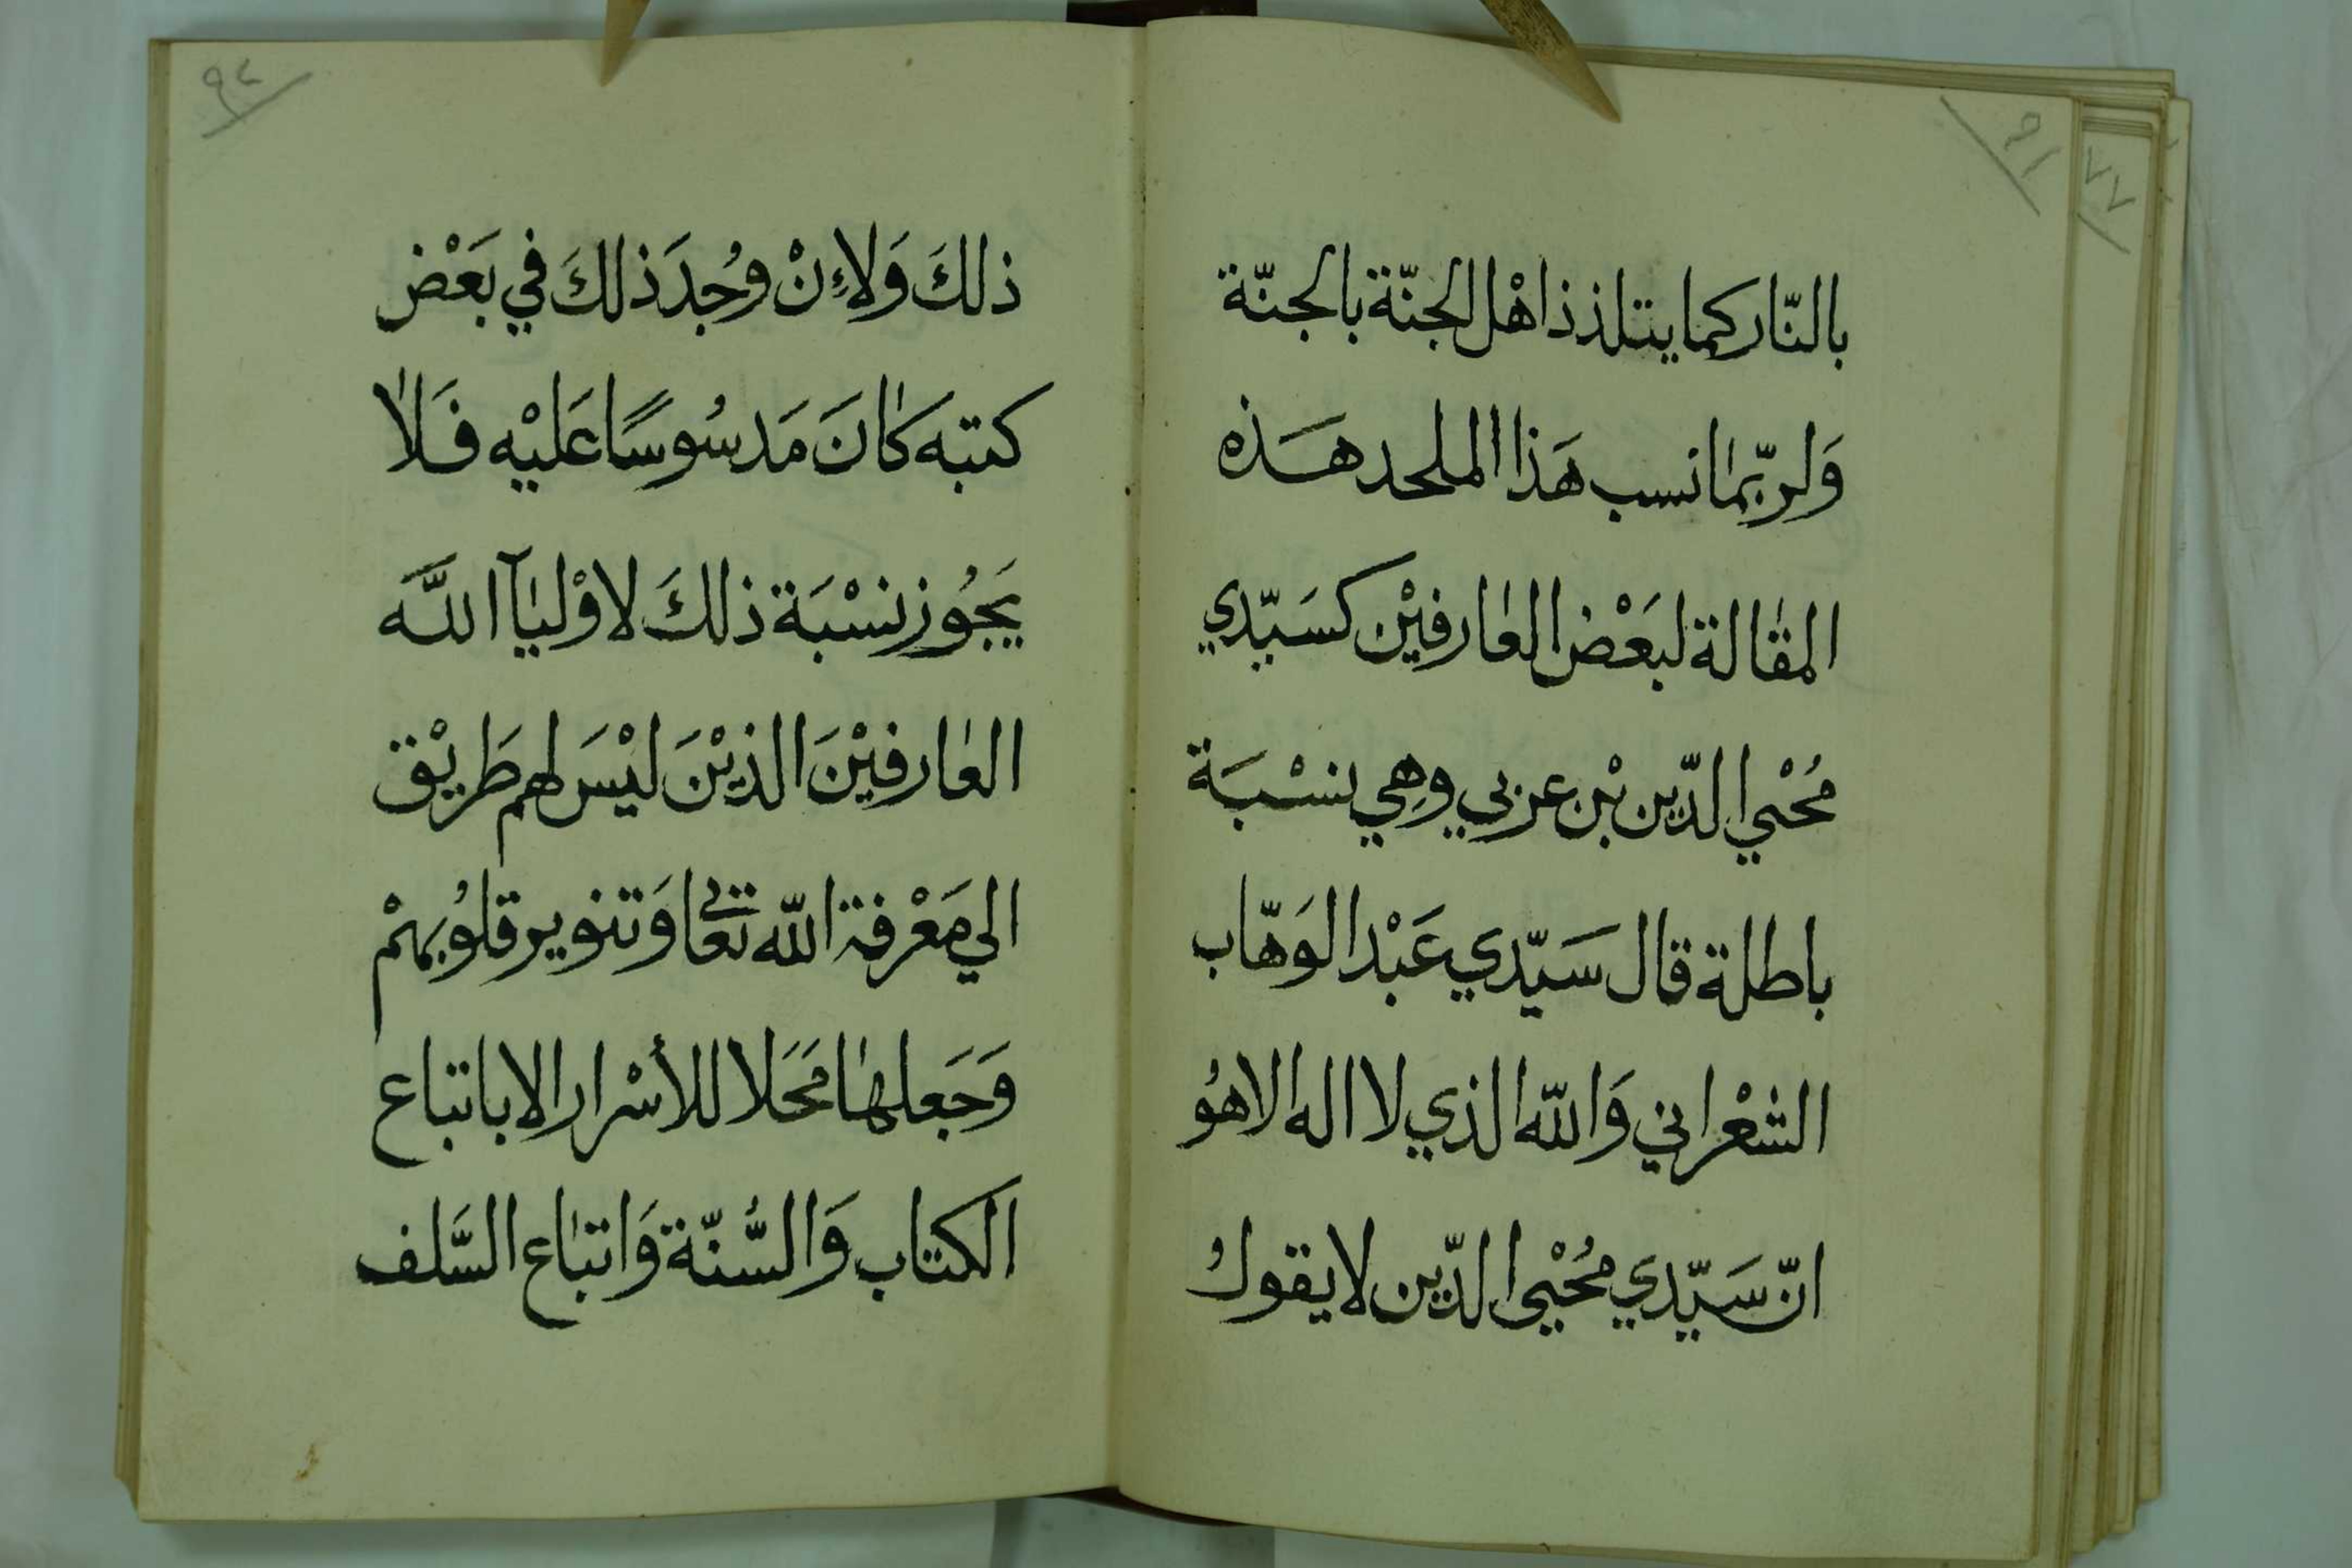 ٩١
بالنّار كما يتلذذ اهْل الجنّة بالجنّة
وَلربّمٰا نسب هَذا الملحد هَذه
المقٰالة لبَعْض العٰارفيْن كسَيّدي
مُحْيي الدّين بْن عربي وهِي نسْبَة
باطلة قال سَيّدي عَبْد الوَهّاب
الشعْراني وَاللّه الذي لا اله الا هُو
انّ سَيّدي مُحْيي الدّين لا يقولُ
٩٢
ذلكَ وَلاءِنْ وُجدَ ذلكَ في بَعْض
كتبه كٰانَ مَدسُوسًا عَليْه فَلاٰ
يَجُوز نسْبَة ذلكَ لاوْليٰآ اللَّه
العٰارفيْنَ الذيْنَ ليْسَ لهم طَريْق
الي مَعْرفة اللّه تعٰالي وَتنوير قلوُبهمْ
وَجَعلهٰا مَحَلا للأسْرار الا باتباع
الكتاب وَالسُّنّة وَاتبٰاع السَّلف